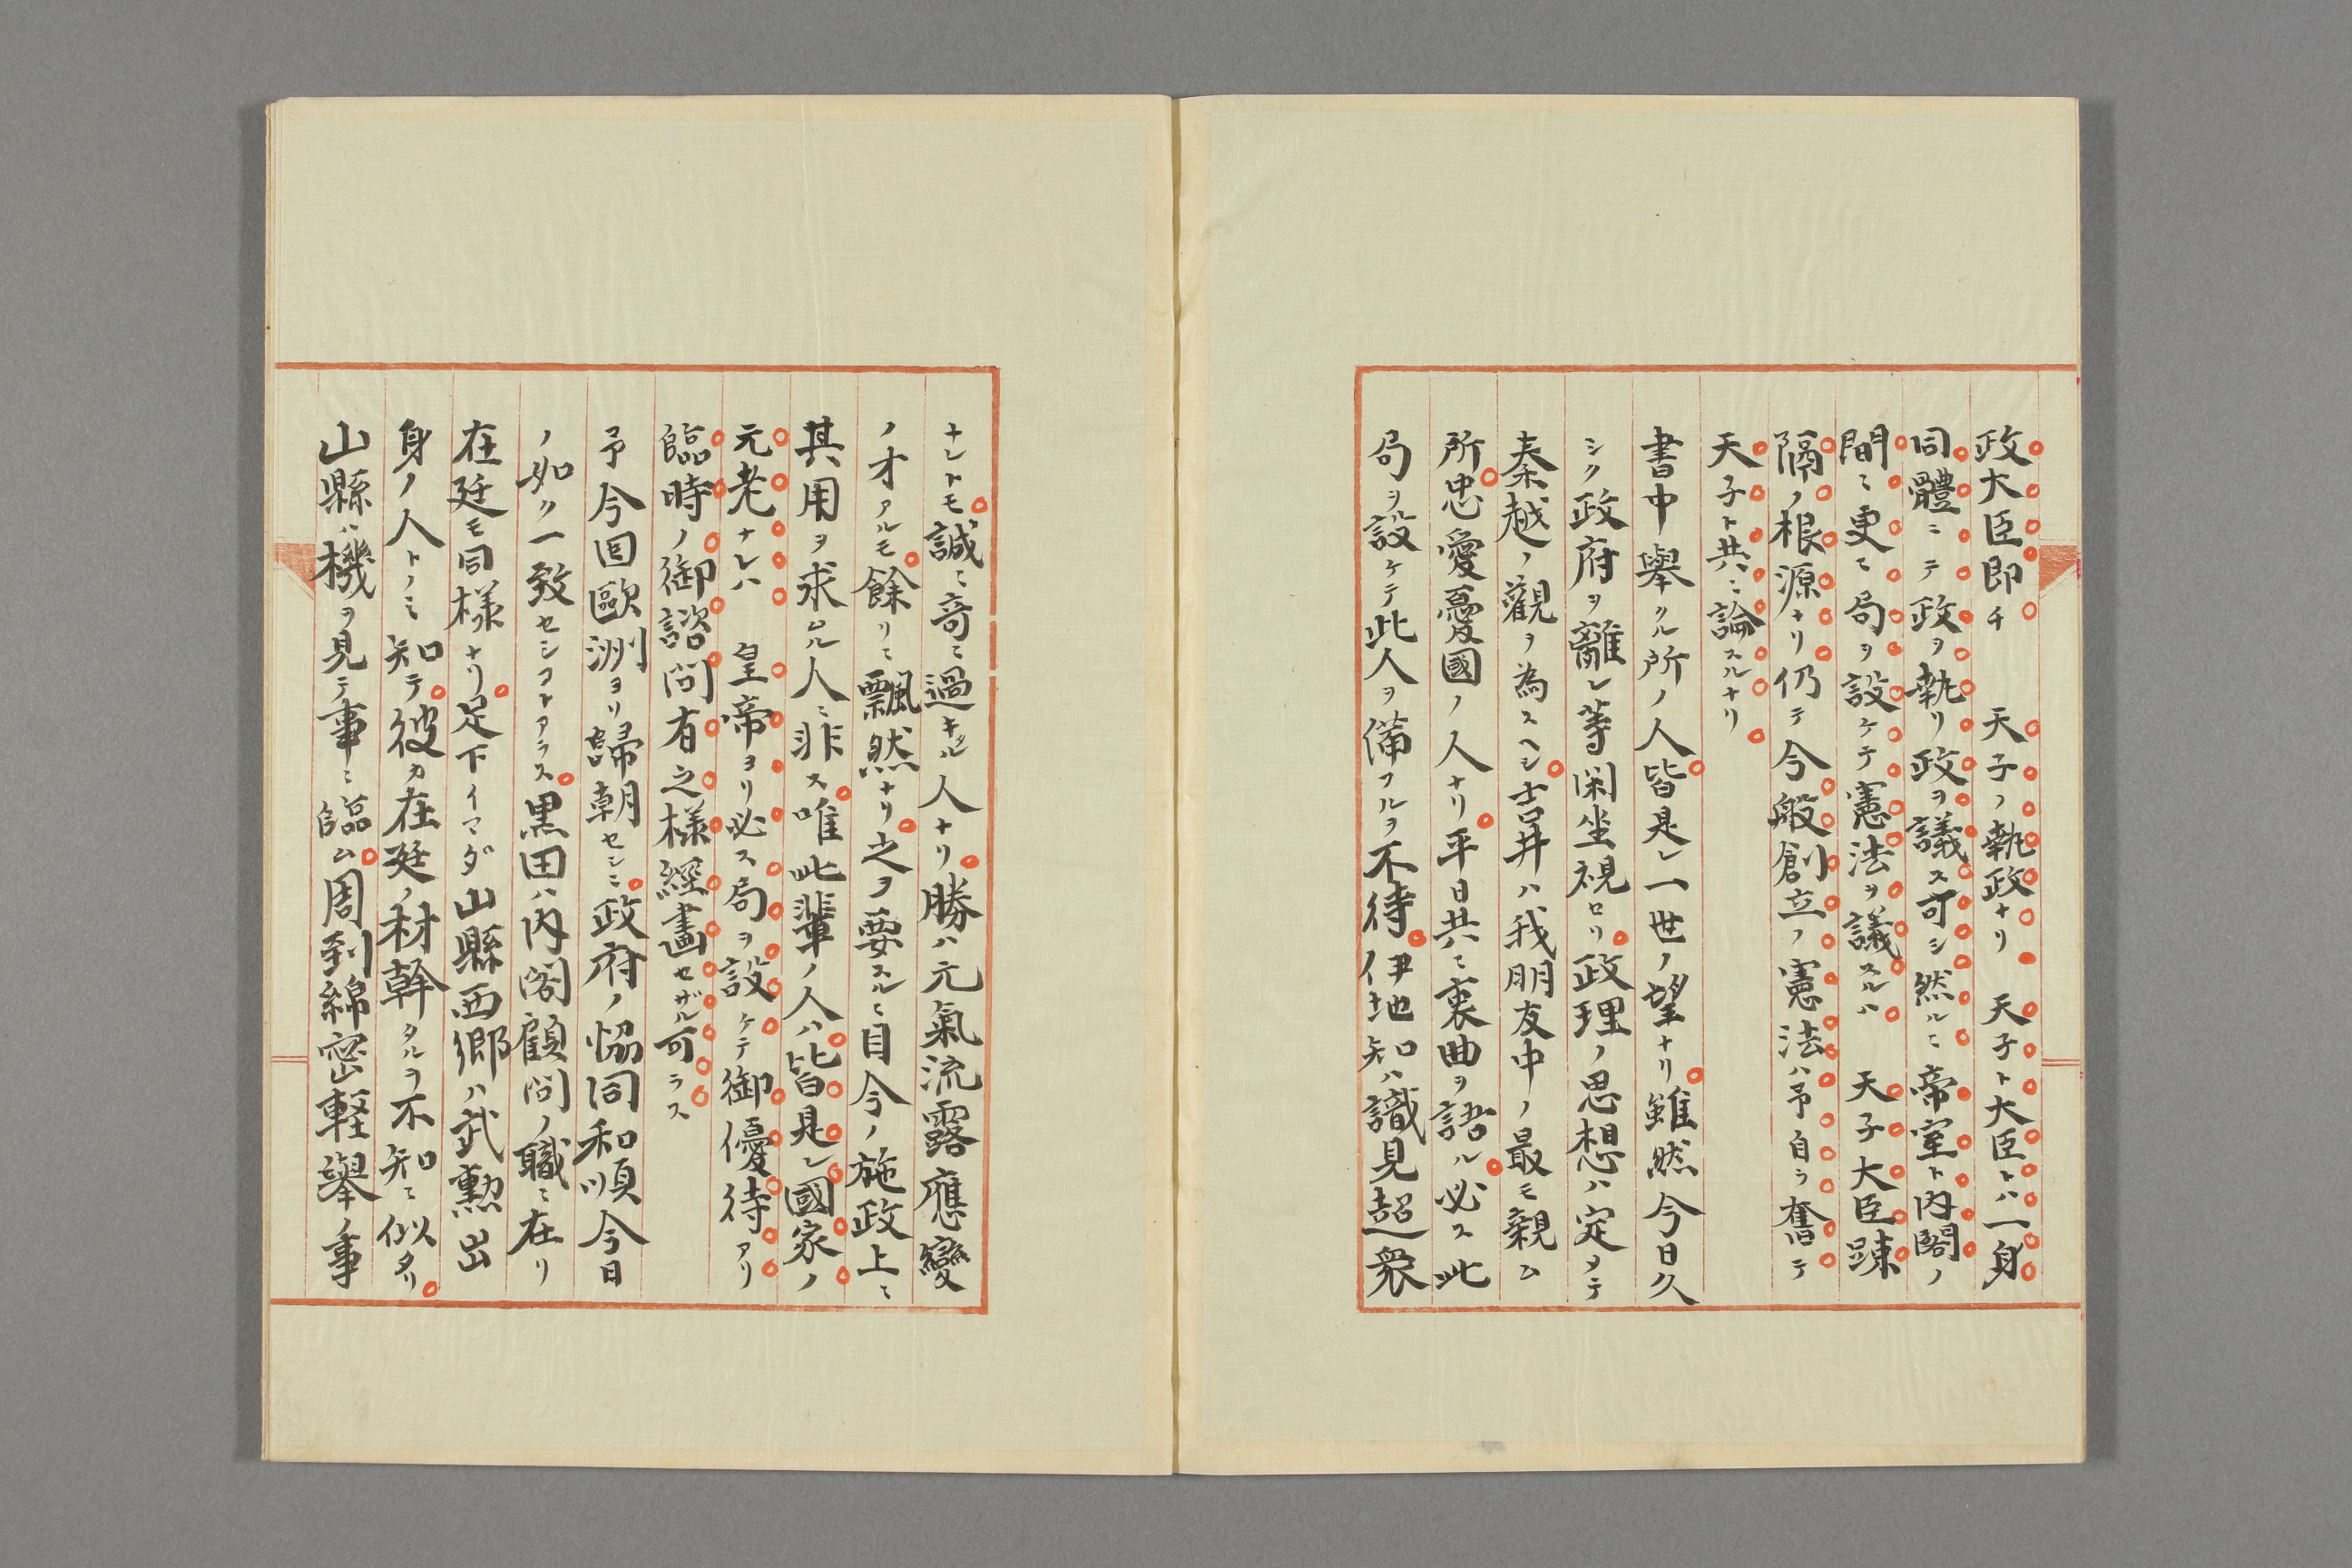 政大臣即チ　天子ノ執政ナリ　天子ト大臣トハ一身
同體ニテ政ヲ執リ政ヲ議ス可シ然ルニ帝室ト内閣ノ
間ニ更ニ局ヲ設ケテ憲法ヲ議スルハ　天子大臣疎
隔ノ根源ナリ仍テ今般創立ノ憲法ハ予自ラ奮テ
天子ト共ニ論スルナリ
書中舉クル所ノ人皆是レ一世ノ望ナリ雖然今日久
シク政府ヲ離レ等閑坐視セリ政理ノ思想ハ定メテ
秦越ノ觀ヲ為スヘシ吉井ハ我朋友中ノ最モ親ム
所忠愛憂國ノ人ナリ平日共ニ衷曲ヲ語ル必ス此
局ヲ設ケテ此人ヲ備フルヲ不待伊地知ハ識見超衆
ナレトモ誠ニ奇ニ過キタル人ナリ勝ハ元氣流露應變
ノオアルモ餘リニ飄然ナリ之ヲ要スルニ目今ノ施政上ニ
其用ヲ求ムル人ニ非ス唯此輩ノ人ハ皆是レ國家ノ
元老ナレハ　皇帝ヨリ必ス局ヲ設ケテ御優待アリ
臨時ノ御諮問有之様經畫セザル可ラス
予今囬歐洲ヨリ歸朝セシニ政府ノ恊同和順今日
ノ如ク一致セシコトアラス黒田ハ内閣顧問ノ職ニ在リ
在廷モ同様ナリ足下イマダ山縣西郷ハ武勲出
身ノ人トノミ知テ彼カ在廷ノ材幹タルヲ不知ニ似タリ
山縣ハ機ヲ見テ事ニ臨ム周到綿密軽舉ノ事